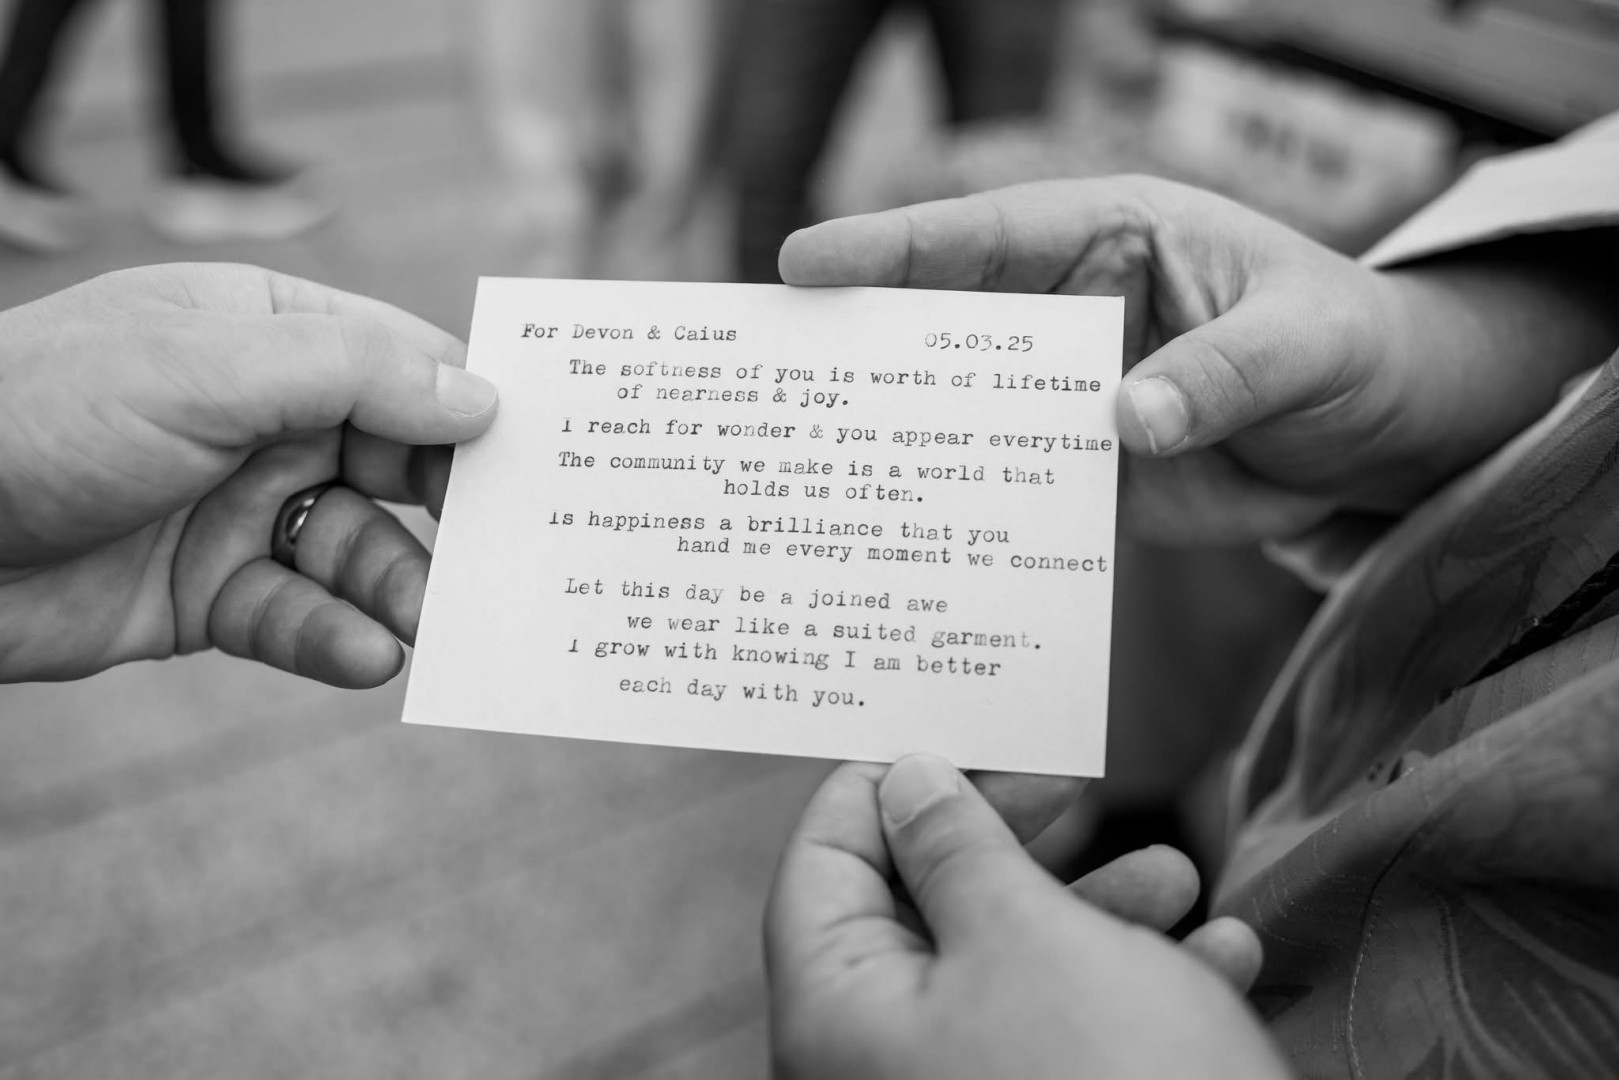 For Devon & Caius 05.03.25
The softness of you is worth of lifetime
of nearness & joy.
I reach for wonder & you appear everytime
The community we make is a world that
holds us often.
is happiness a brilliance that you
hand me every moment we connect
Let this day be a joined awe
we wear like a suited garment.
I grow with knowing I am better
each day with you.